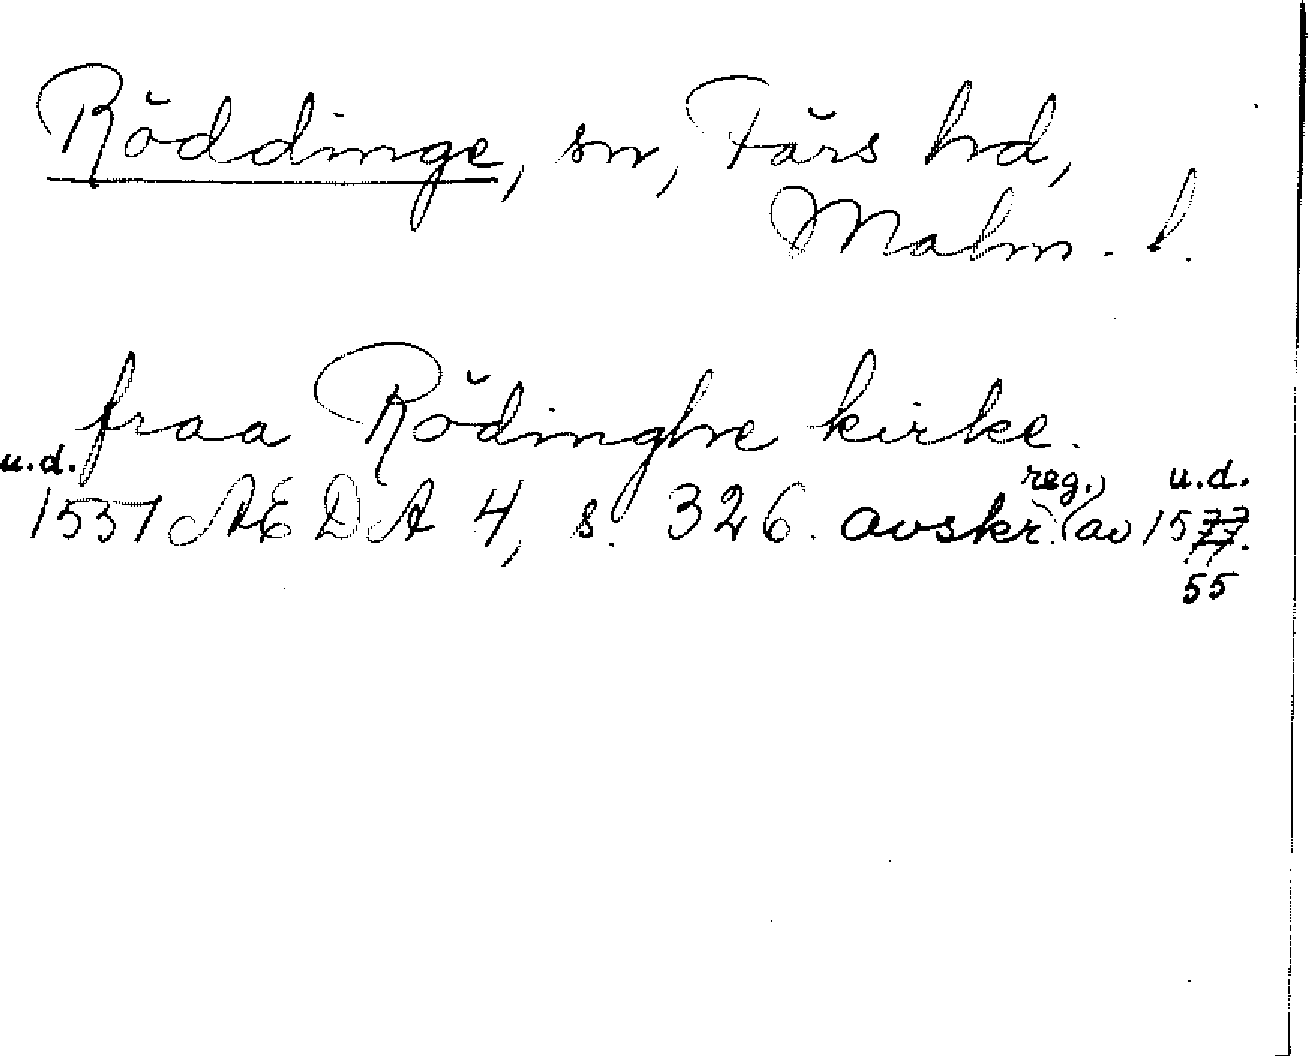 Röddinge, sn, Färs hd,
Malm. l.
fraa Rödinghe kirke.
u.d. reg., u.d.
1537 ÆDA 4, s. 326. avskr. (av 1577.
55